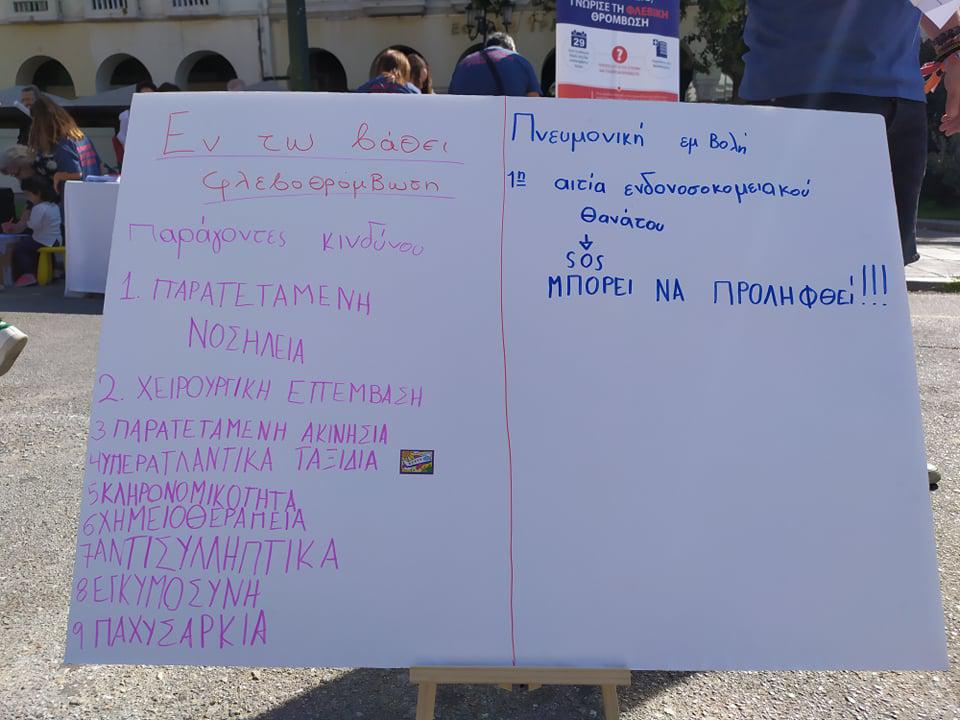 ΓΝΩΡΙΣΕ ΤΗ ΦΛΕΒΙΚΗ
ΘΡΟΜΒΩΣΗ
29
?
Εν τω βάθει
φλεβοθρόμβωση
Παράγοντες κινδύνου
1. ΠΑΡΑΤΕΤΑΜΕΝΗ
ΝΟΣΗΛΕΙΑ
2. ΧΕΙΡΟΥΡΓΙΚΗ ΕΠΕΜΒΑΣΗ
3 ΠΑΡΑΤΕΤΑΜΕΝΗ ΑΚΙΝΗΣΙΑ
4 ΥΠΕΡΑΤΛΑΝΤΙΚΑ ΤΑΞΙΔΙΑ
5 ΚΛΗΡΟΝΟΜΙΚΟΤΗΤΑ
6 ΧΗΜΕΙΟΘΕΡΑΠΕΙΑ
7 ΑΝΤΙΣΥΛΛΗΠΤΙΚΑ
8 ΕΓΚΥΜΟΣΥΝΗ
9 ΠΑΧΥΣΑΡΚΙΑ
Πνευμονική εμβολή
1η αιτία ενδονοσοκομειακού
θανάτου
↓
SOS
ΜΠΟΡΕΙ ΝΑ ΠΡΟΛΗΦΘΕί!!!